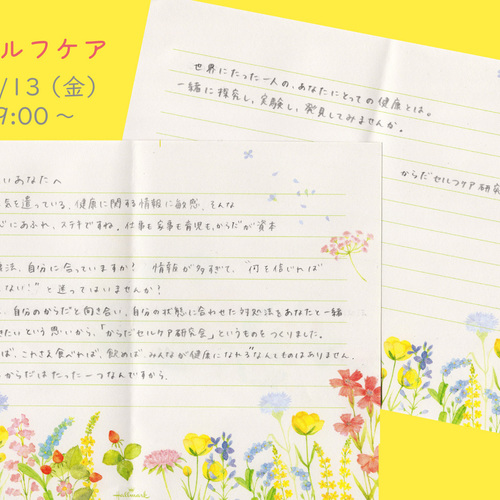 ルフケア
/13（金）
9:00～
世界にたった一人の、あなたにとっての健康とは。
一緒に探究し、実験し、発見してみませんか。
からだセルフケア研究
いあなたへ
を遣っている、健康に関する情報に敏感、そんな
にあふれ、ステキですね。仕事も家事も育児も、からだが資本
法、自分に合っていますか？ 情報が多すぎて、"何を信じれば
ない！"と迷ってはいませんか？
、自分のからだと向き合い、自分の状態に合わせた対処法をあなたと一緒
たいという思いから、「からだセルケア研究会」というものをつくりました。
ば、これさえ食べれば、飲めば、みんなが健康になれる"なんてものはありません。
からだはたった一つなんですから。
Hallmark